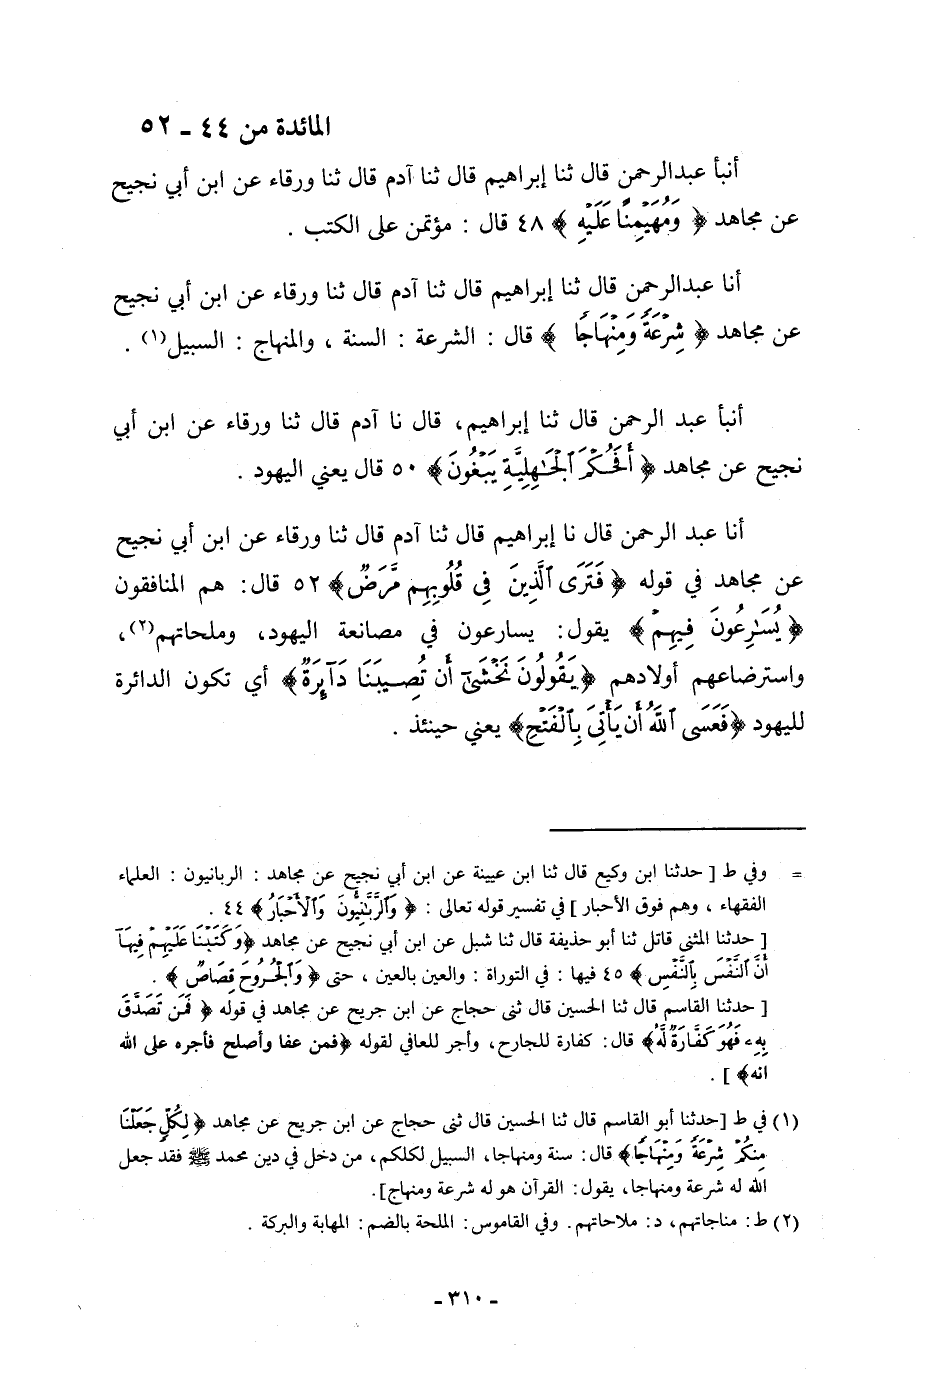 المائدة من ٤٤ ـ ٥٢
أنبأ عبدالرحمن قال ثنا إبراهيم قال ثنا آدم قال ثنا ورقاء عن ابن أبي نجيح
عن مجاهد ﴿ وَمُهَيْمِنًا عَلَيْهِ ﴾ ٤٨ قال : مؤتمن على الكتب .
أنا عبدالرحمن قال ثنا إبراهيم قال ثنا آدم قال ثنا ورقاء عن ابن أبي نجيح
عن مجاهد ﴿ شِرْعَةً وَمِنْهَاجًا ﴾ قال : الشرعة : السنة ، والمنهاج : السبيل(١) .
أنبأ عبد الرحمن قال ثنا إبراهيم، قال نا آدم قال ثنا ورقاء عن ابن أبي
نجيح عن مجاهد ﴿ أَفَحُكْمَ ٱلْجَٰهِلِيَّةِ يَبْغُونَ﴾ ٥٠ قال يعني اليهود .
أنا عبد الرحمن قال نا إبراهيم قال ثنا آدم قال ثنا ورقاء عن ابن أبي نجيح
عن مجاهد في قوله ﴿ فَتَرَى ٱلَّذِينَ فِى قُلُوبِهِم مَّرَضٌ﴾ ٥٢ قال: هم المنافقون
﴿ يُسَٰرِعُونَ فِيهِمْ﴾ يقول: يسارعون في مصانعة اليهود، وملحاتهم(٢)،
واسترضاعهم أولادهم ﴿يَقُولُونَ نَخْشَىٰٓ أَن تُصِيبَنَا دَآئِرَةٌ﴾ أي تكون الدائرة
لليهود ﴿فَعَسَى ٱللَّهُ أَن يَأْتِىَ بِٱلْفَتْحِ﴾ يعني حينئذ .
= وفي ط [ حدثنا ابن وكيع قال ثنا ابن عيينة عن ابن أبي نجيح عن مجاهد : الربانيون : العلماء
الفقهاء ، وهم فوق الأحبار ] في تفسير قوله تعالى : ﴿ وَٱلرَّبَّٰنِيُّونَ وَٱلْأَحْبَارُ ﴾ ٤٤ .
[ حدثنا المثنى قاتل ثنا أبو حذيفة قال ثنا شبل عن ابن أبي نجيح عن مجاهد ﴿وَكَتَبْنَا عَلَيْهِمْ فِيهَآ
أَنَّ ٱلنَّفْسَ بِٱلنَّفْسِ ﴾ ٤٥ فيها : في التوراة : والعين بالعين ، حتى ﴿ وَٱلْجُرُوحَ قِصَاصٌ ﴾ .
[ حدثنا القاسم قال ثنا الحسين قال ثنى حجاج عن ابن جريح عن مجاهد في قوله ﴿ فَمَن تَصَدَّقَ
بِهِۦ فَهُوَ كَفَّارَةٌ لَّهُ﴾ قال: كفارة للجارح، وأجر للعافي لقوله ﴿فمن عفا وأصلح فأجره على الله
انه﴾ ] .
(١) في ط [حدثنا أبو القاسم قال ثنا الحسين قال ثنى حجاج عن ابن جريح عن مجاهد ﴿ لِكُلٍّ جَعَلْنَا
مِنكُمْ شِرْعَةً وَمِنْهَاجًا﴾ قال: سنة ومنهاجا، السبيل لكلكم، من دخل في دين محمد ﷺ فقد جعل
الله له شرعة ومنهاجا، يقول: القرآن هو له شرعة ومنهاج].
(٢) ط: مناجاتهم، د: ملاحاتهم. وفي القاموس: الملحة بالضم: المهابة والبركة .
ـ ٣١٠ ـ